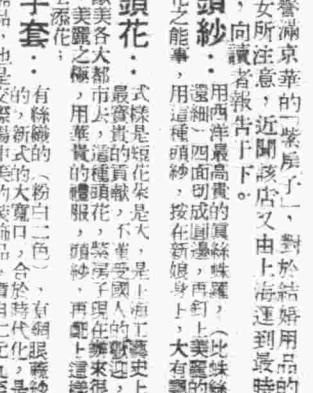 譽滿京華的「紫房子」，對於結婚用品的
女所注意，近聞該店又由上海運到最時
，向讀者報告于下。
頭紗：用西洋最高貴的眞絲蛛羅，（比蛛絲
還細）四面切成圓邊，再釘上美麗的
花之能事，用這種頭紗，按在新娘身上，大有飄
頭花：式樣是短花朶是大，是上海工藝史上
最寶貴的貢獻，不僅受國人的歡迎，
歐美各大都市去，這種頭花，紫房子現在辦來很
美麗之極，用華貴的禮服，頭紗，再配上這樣
去添花；
手套：有絲織的（粉白二色），有網眼
的，新式的大寬口，合於時代化，是
品，也是交際場中美的裝飾品，